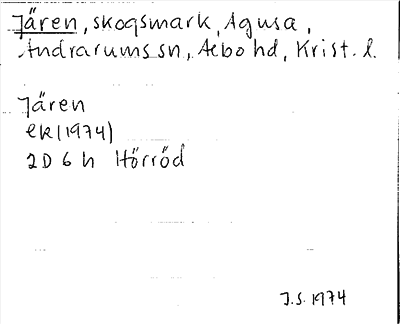 Jären, skogsmark, Agusa,
Andrarums sn, Albo hd, Krist. l.
Jären
ek (1974)
2D 6 h Hörröd
J.S. 1974